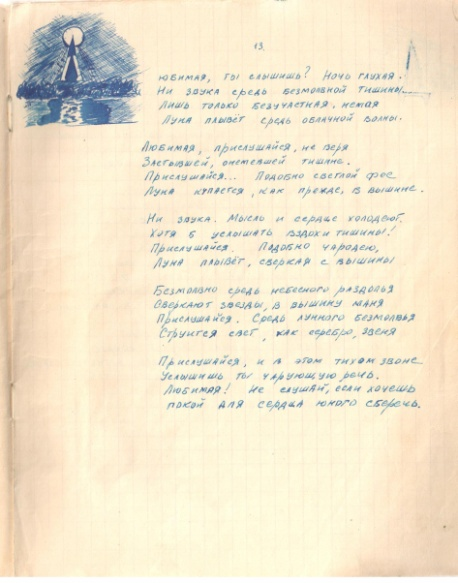 13.
юбимая, ты слышишь? Ночь глухая.
Ни звука средь безмолвной тишины.
Лишь только безучастная, немая
Луна плывёт средь облачной волны.
Любимая, прислушайся, не веря
Застывшей, онемевшей тишине.
Прислушайся... Подобно светлой фее
Луна купается, как прежде, в вышине.
Ни звука. Мысль и сердце холодеют.
Хотя б услышать вздохи тишины!
Прислушайся. Подобно чародею,
Луна плывёт, сверкая с вышины
Безмолвно средь небесного раздолья
Сверкают звезды, в вышину маня
Прислушайся. Средь лунного безмолвья
Струится свет, как серебро, звеня
Прислушайся, и в этом тихом звоне
Услышишь ты чарующую речь.
Любимая! Не слушай, если хочешь
покой для сердца юного сберечь.